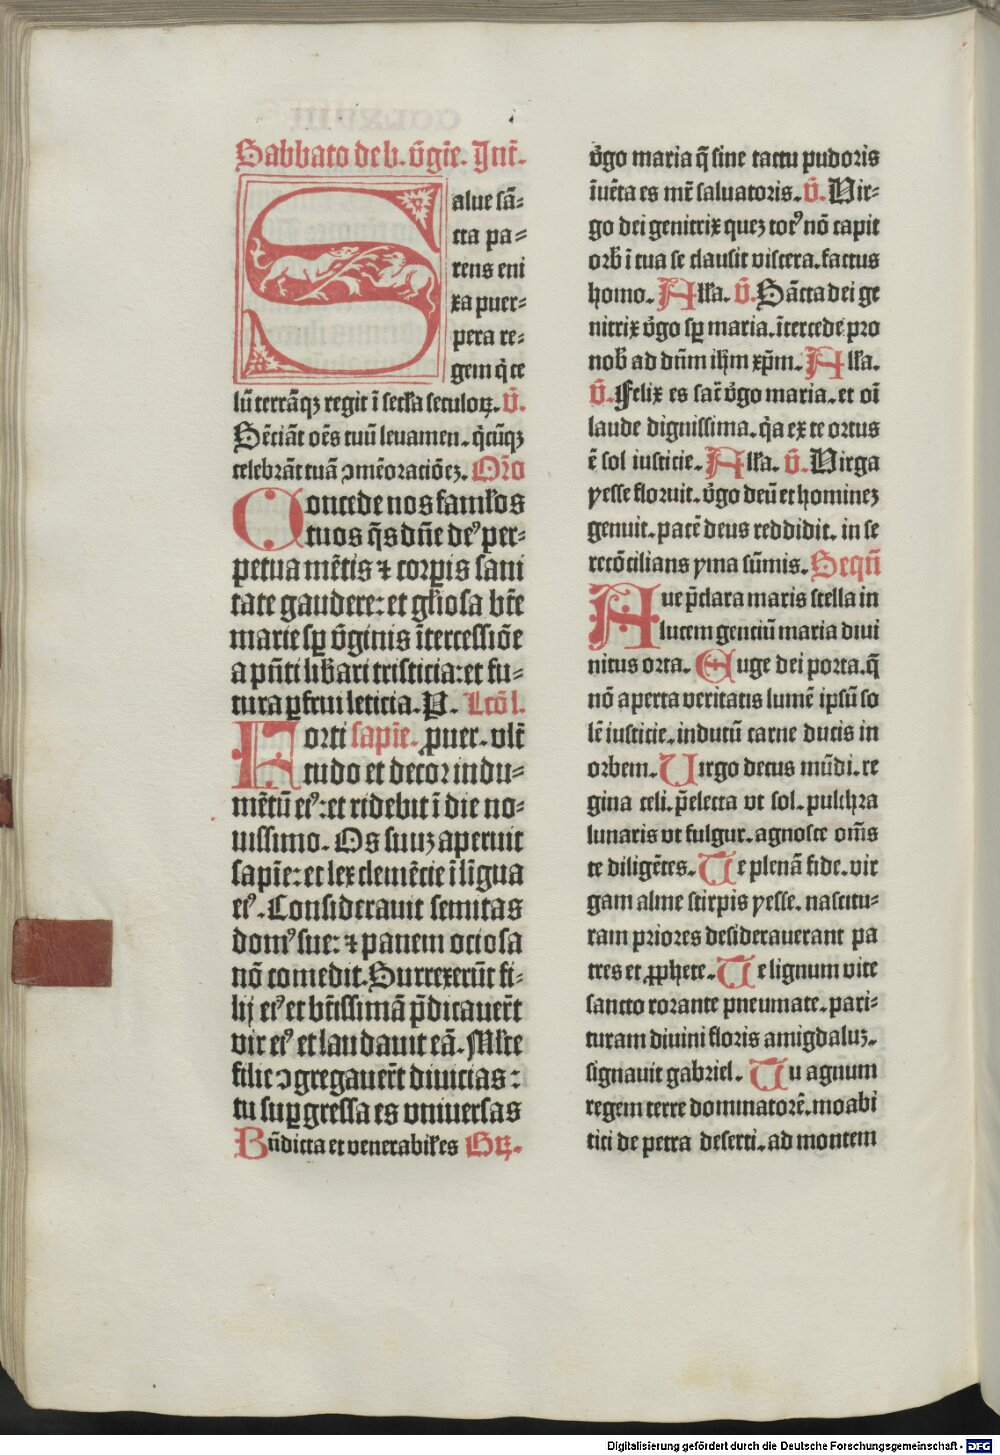 Sabbato de b. v̄gīe. Int̄.
Salue sā-
cta pa-
rens eni
xa puer-
pera re-
gem q̇ ce
lū terrāqꝫ regit ī secła seculoꝝ. V̄.
Sēciāt oēs tuū leuamen. q̇cūqꝫ
celebrāt tuā ↄmēoraciōeꝫ. Oŕo
Concede nos famłos
tuos q̄s dn̄e deꝰ per-
petua mētis ⁊ corꝑis sani
tate gaudere: et głiosa bt̄e
marie sꝑ v̄ginis ītercessiōe
a pn̄ti libari tristicia: et fu-
tura ꝑfrui leticia. P. Lcō l.
Forti sapīe. ꝓuer. vlt̄
tudo et decor indu-
mētū eiꝰ: et ridebit ī die no-
uissimo. Os suuꝫ aperuit
sapīe: et lex clemēcie ī līgua
eiꝰ. Considerauit semitas
domꝰ sue: ⁊ panem ociosa
nō comedit. Surrexerūt fi-
lij eiꝰ et btīssimā p̄dicauert̄
vir eiꝰ et laudauit eā. Młte
filie ↄgregauert̄ diuicias:
tu suꝑgressa es vniuersas
Bn̄dicta et venerabiłes Gꝝ.
v̇go maria q̄ sine tactu pudoris
īuēta es mr̄ saluatoris. V̄. Vir-
go dei genitrix queꝫ totꝰ nō capit
orb̄ ī tua se clausit viscera. factus
homo. Ałła. V̄. Sācta dei ge
nitrix v̇go sꝑ maria. ītercede pro
nob̄ ad dn̄m ih̄m xp̄m. Ałła.
V̄. Felix es sac̄ v̇go maria. et oī
laude dignissima. q̇a ex te ortus
ē sol iusticie. Ałła. V̄. Virga
yesse floruit. v̇go deū et homineꝫ
genuit. pacē deus reddidit. in se
recōcilians yma sūmis. Sequn̄
Aue p̄clara maris stella in
lucem genciū maria diui
nitus orta. Euge dei porta. q̄
nō aperta veritatis lumē ipsū so
lē iusticie. indutū carne ducis in
orbem. Virgo decus mūdi. re
gina celi. p̄electa vt sol. pulchra
lunaris vt fulgur. agnosce om̄s
te diligētes. Te plenā fide. vir
gam alme stirpis yesse. nascitu-
ram priores desiderauerant pa
tres et ꝓphete. Te lignum vite
sancto rorante pneumate. pari-
turam diuini floris amigdaluꝫ.
signauit gabriel. Tu agnum
regem terre dominatorē. moabi
tici de petra deserti. ad montem
Digitalisierung gefördert durch die Deutsche Forschungsgemeinschaft - DFG